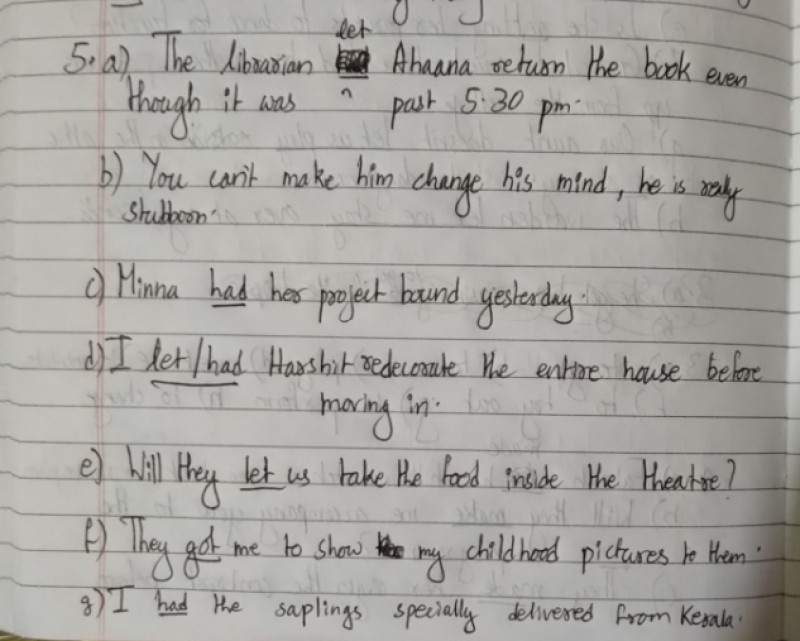 let
5. a) The librarian ^ Ahaana return the book even
though it was past 5.30 pm.
b) You can't make him change his mind, he is really
stubborn.
c) Minna had her project bound yesterday.
d) I let/had Harshit redecorate the entire house before
moving in.
e) Will they let us take the food inside the theatre?
f) They got me to show my childhood pictures to them.
g) I had the saplings specially delivered from Kerala.